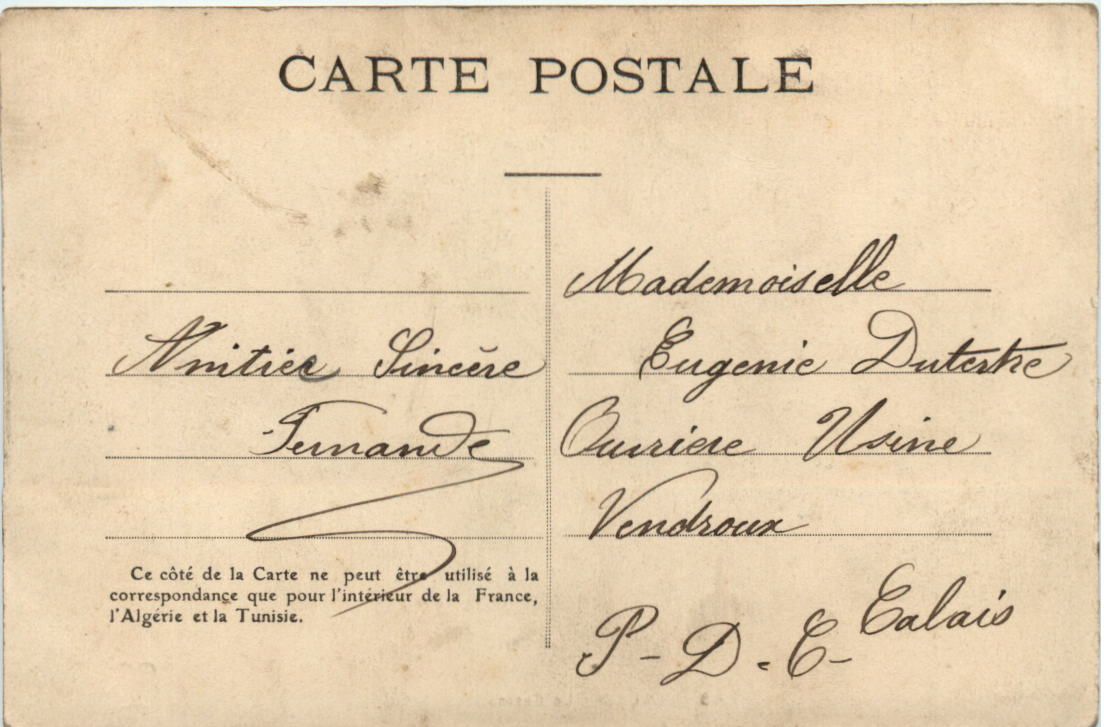 CARTE POSTALE
Amitiée Sincère
Fernande
Ce côté de la Carte ne peut être utilisé à la
correspondance que pour l'intérieur de la France,
l'Algérie et la Tunisie.
Mademoiselle
Eugenie Dutertre
Ouvriere Usine
Vendroux
Calais
P-D-C-